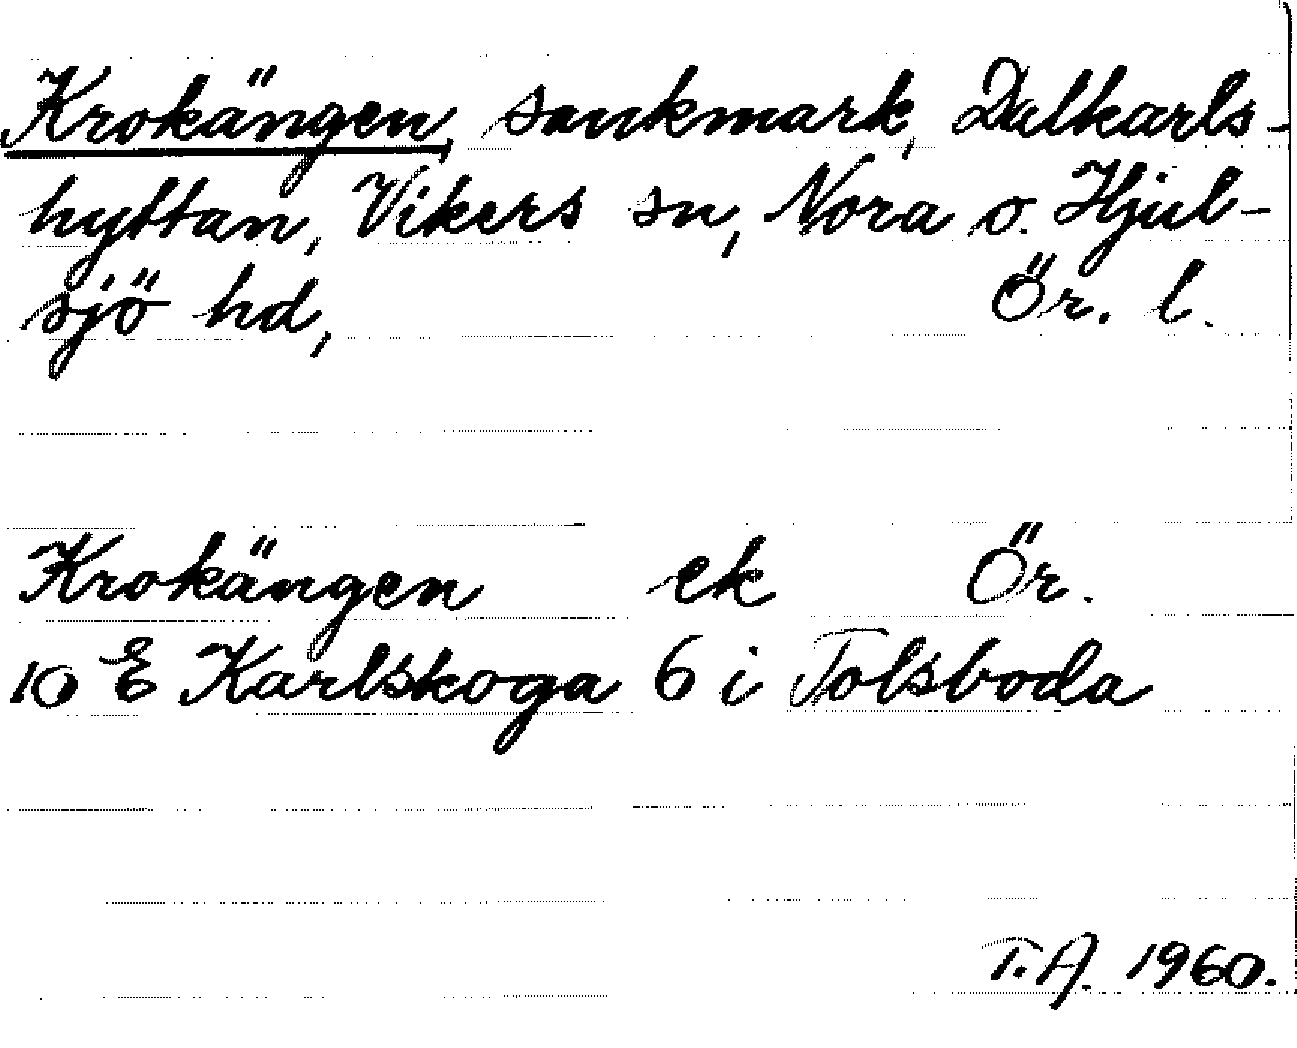 Krokängen, sankmark, Dalkarls-
hyttan, Vikers sn, Nora o. Hjul-
sjö hd, Ör. l.
Krokängen ek Ör.
10 E Karlskoga 6 i Tolsboda
T.A. 1960.